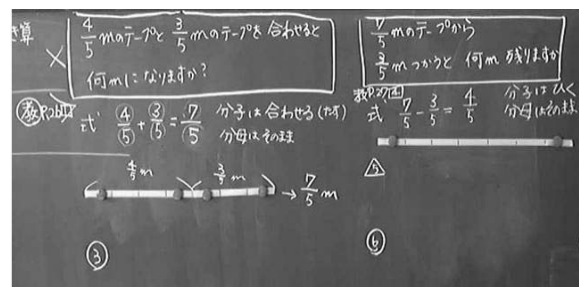 き算
4/5 mのテープと 3/5 mのテープを 合わせると
何mに なりますか?
式 4/5 + 3/5 = 7/5 分子は合わせる(たす)
分母はそのまま
4/5 m 3/5 m
→ 7/5 m
③
7/5 mのテープから
3/5 m つかうと 何m 残りますか
式 7/5 - 3/5 = 4/5 分子はひく
分母はそのまま
5
⑥